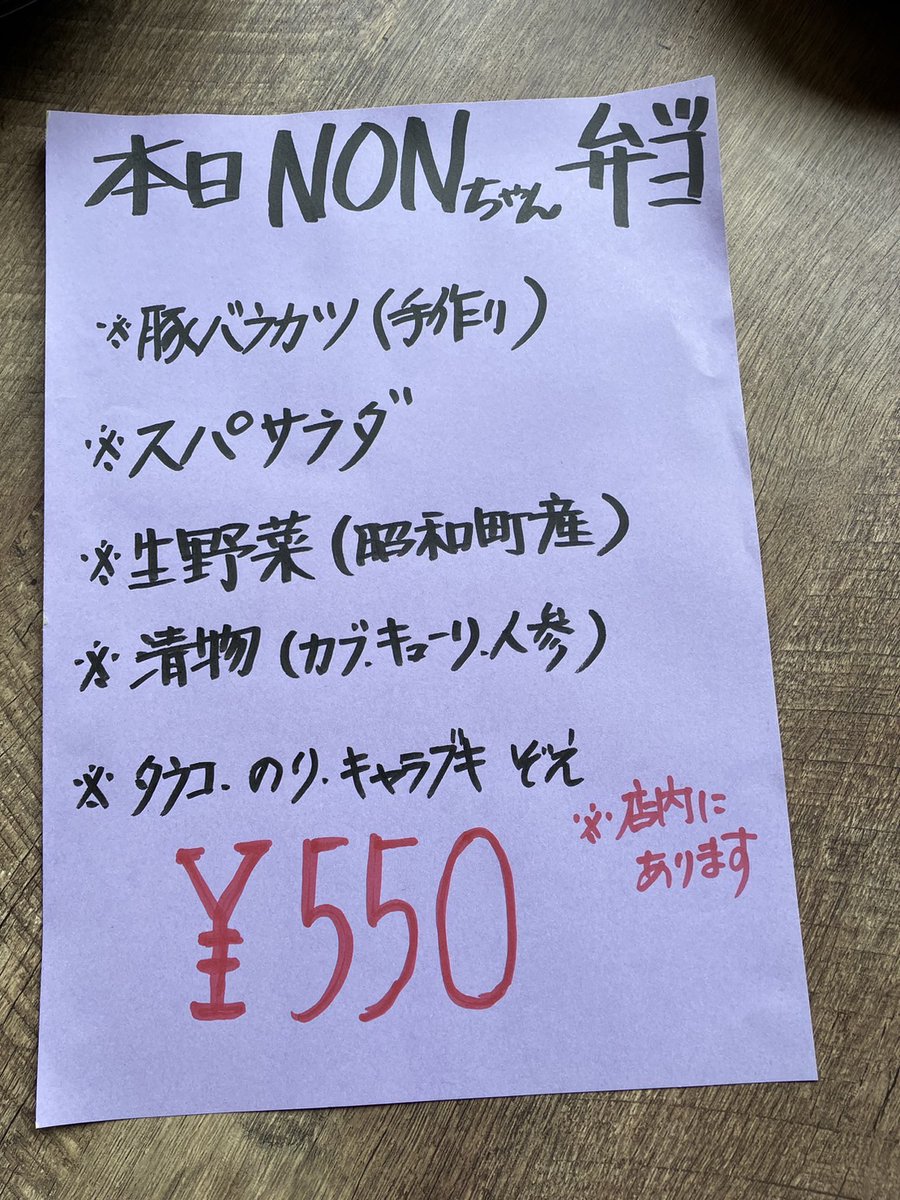 本日 NONちゃん 弁当
※豚バラカツ(手作り)
※スパサラダ
※生野菜(昭和町産)
※漬物(カブ・キューリ・人参)
※タラコ・のり・キャラブキ ぞえ
¥550
※店内に
あります